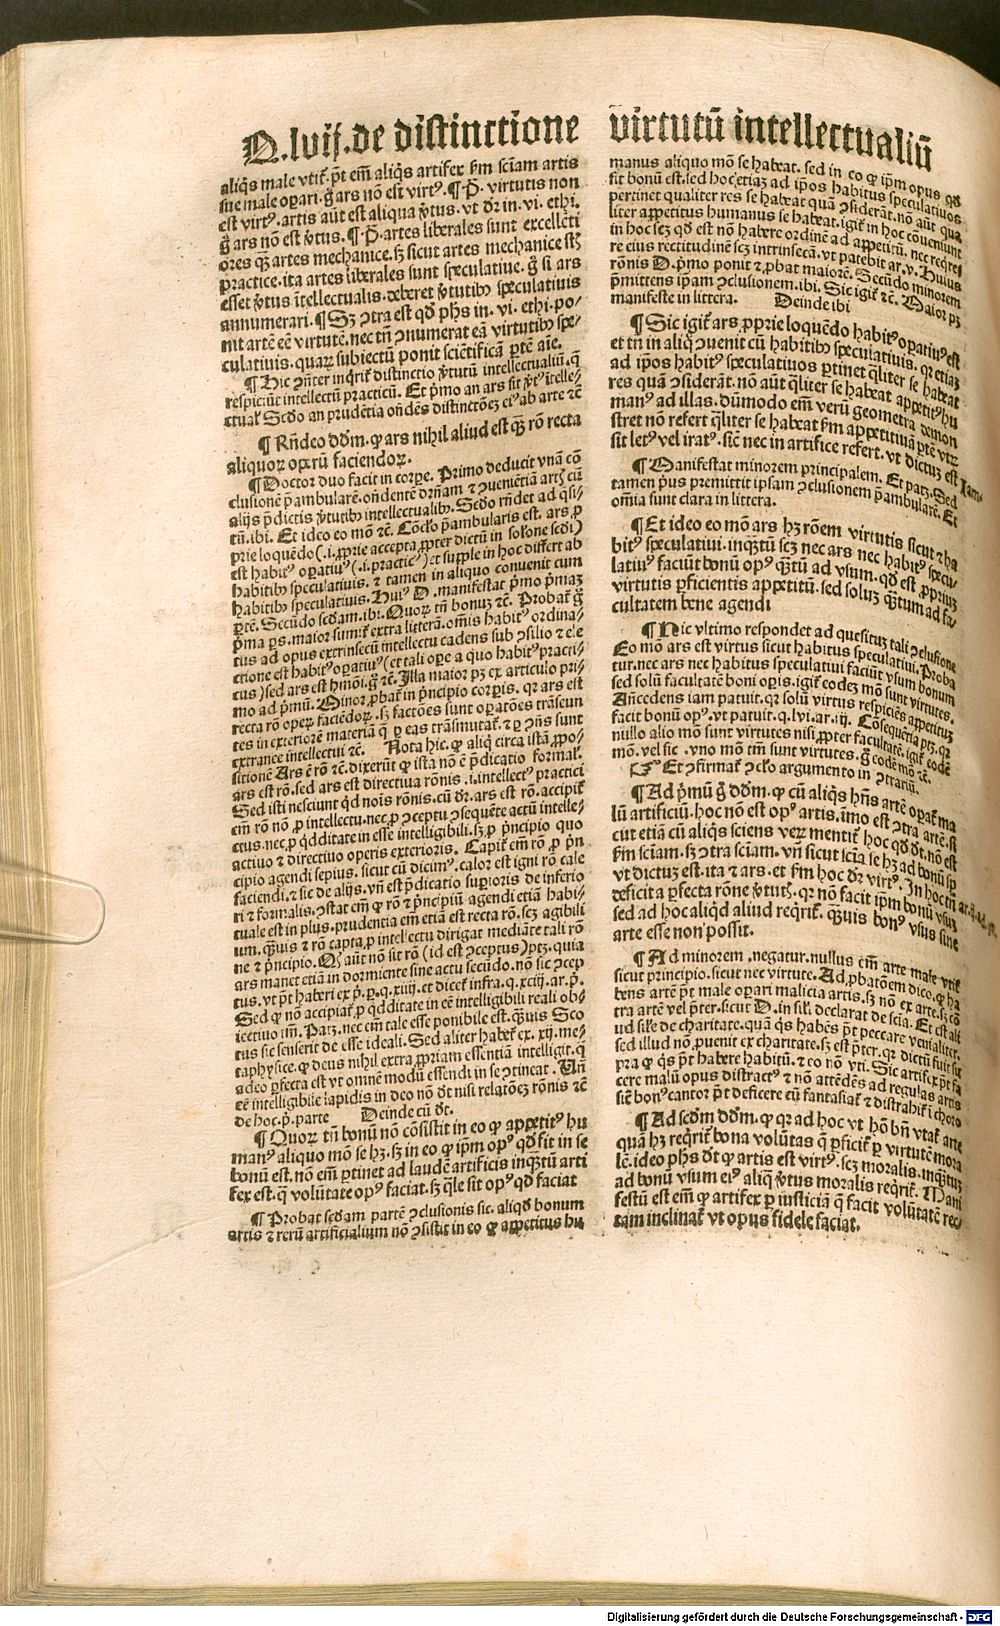 Q.lvij.de distinctione virtutū intellectualiū
aliq̄s male vtit᷑.p̄t em̄ aliq̄s artifex ẜm sciam artis
sue male oꝑari.g̊ ars nō est virt⁹.¶P̄. virtutis non
est virt⁹.artis aūt est aliqua v̓tus.vt dr̄ in.vi.ethi.
g̊ ars nō est v̓tus.¶P̄.artes liberales sunt excellēti
ores q̄ʒ artes mechanice.sʒ sicut artes mechanice sūt
practice.ita artes liberales sunt speculatiue.g̊ si ars
esset v̓tus ītellectualis.deberet v̓tutibꝰ speculatiuis
annumerari.¶Sʒ ↄtra est qd̄ ph̄s in.vi.ethi.po-
nit artē eē virtutē.nec tn̄ ↄnumerat eā virtutibꝰ spe-
culatiuis.quaꝝ subiectū ponit sciētificā ꝑtē aīe.
¶Hic ↄn̄ter inq̄rit᷑ distinctio v̓tutū intellectualiū.q̄
respiciūt intellectū practicū. Et p̄mo an ars sit v̓t⁹ ītelle-
ctual᷑ Scd̄o an prudētia on̄dēs distinctōeʒ ei⁹ ab arte ⁊c̄
¶Rn̄deo dd̄m.ꝙ ars nihil aliud est q̄ʒ rō recta
aliquoꝝ oꝑū faciendoꝝ.
¶Doctor duo facit in corꝑe. Primo deducit vnā cō
clusionē p̄ambularē.on̄dentē dr̄nam ⁊ ↄueniētiā artꝭ cū
alijs p̄dictis v̓tutibꝰ intellectualibꝰ.Scd̄o rn̄det ad q̄si-
tū.ibi. Et ideo eo mō ⁊c̄. Cōclō p̄ambularis est. ars ꝓ
prie loquēdo(.i.ꝓprie accepta ꝓpter dictū in solone scd̓i)
est habit⁹ oꝑatiu⁹(.i.practic⁹)et supple in hoc differt ab
habitibꝰ speculatiuis.⁊ tamen in aliquo conuenit cum
habitibꝰ speculatiuis. Hui⁹ D.manifestat p̄mo p̄maʒ
ꝑtē. Secūdo scd̄am.ibi.Quoꝝ tn̄ bonuʒ ⁊c̄. Probat᷑ g̊
p̄ma ꝑs.maior sumit᷑ extra litterā.om̄is habit⁹ ordina-
tus ad opus extrinsecū intellectu cadens sub ↄsilio ⁊ ele
ctione est habit⁹ oꝑatiu⁹(et tali oꝑe a quo habit⁹ practi-
cus)sed ars est hmōi.g̊ ⁊c̄.Illa maior pʒ ex articulo pri-
mo ad p̄mū. Minor ꝓbat᷑ in p̄ncipio corꝑis. qr ars est
recta rō oꝑeꝝ faciēdoꝝ.sʒ factōes sunt oꝑatōes trāseun
tes in exteriorē materiā q̄ ꝑ eas trāsmutat᷑.⁊ ꝑ ↄn̄s sunt
extrance intellectui ⁊c̄. Nota hic.ꝙ aliq̄ circa istā ꝓpo-
sitionē Ars ē rō ⁊c̄.dixerūt ꝙ ista nō ē p̄dicatio formal᷑.
ars est rō.sed ars est directiua rōnis.i.intellect⁹ practici
Sed isti nesciunt qd̓ nois rōnis.cū dr̄.ars est rō.accipit᷑
em̄ rō nō ꝓ intellectu.nec ꝓ ↄceptu ↄseq̄uēte actū intelle-
ctus.nec.ꝓ qd̓ditate in esse intelligibili.sʒ ꝓ p̄ncipio quo
actiuo ⁊ directiuo operis exterioris. Capit᷑ em̄ rō ꝓ p̄n
cipio agendi sepius.sicut cū dicim⁹.calor est igni rō cale
faciendi.⁊ sic de alijs.vn̄ est p̄dicatio suꝑioris de inferio
ri ⁊ formalis.ↄstat em̄ ꝙ rō ⁊ p̄ncipiū agendi etiā habi-
tuale est in plus.prudentia em̄ etiā est recta rō.scʒ agibili
um.q̄uis ⁊ rō capta ꝓ intellectu dirigat mediāte tali rō
ne ⁊ p̄ncipio.Q̄ aūt nō sit rō(id est ↄceptus)ptʒ.quia
ars manet etiā in dormiente sine actu secūdo.nō sic ↄcep
tus.vt p̄t haberi ex p̄.ꝑ.q.xiiij.et dicet᷑ infra.q.xciij.ar.p̄.
Sed ꝙ nō accipiat᷑ ꝓ qd̓ditate in eē intelligibili reali ob-
iectiuo tm̄. Patʒ.nec em̄ tale esse ponibile est.q̄uis Sco
tus sic senserit de esse ideali. Sed aliter habet᷑ ex.xij.me-
taphysice.ꝙ deus nihil extra ꝓpriam essentiā intelligit.q̄
adeo ꝑfecta est vt omnē modū essendi in se ↄtineat. Vn̄
eē intelligibile lapidis in deo nō dr̄ nisi relatōeʒ rōnis ⁊c̄
de hoc.p̄.parte Deinde cū dr̄.
¶Quoꝝ tn̄ bonū nō cōsistit in eo ꝙ appetit⁹ hu
man⁹ aliquo mō se hʒ.sʒ in eo ꝙ ip̄m op⁹ qd̓ fit in se
bonū est.nō em̄ ꝑtinet ad laudē artificis inq̄ʒtū arti
fex est.q̄ volūtate op⁹ faciat.sʒ q̄le sit op⁹ qd̓ faciat
¶Probat scd̄am partē ↄclusionis sic.aliqd̓ bonum
artis ⁊ rerū artificialium nō ↄsistit in eo ꝙ appetitus hu
manus aliquo mō se habeat. sed in eo ꝙ ip̄m opus qd̓
fit bonū est.sed hoc etiaʒ ad ip̄os habitus speculatiuos
pertinet qualiter res se habeāt quā ↄsiderāt.nō aūt qua
liter appetitus humanus se habeat.igit᷑ in hoc cōueniunt
in hoc scʒ qd̓ est nō habere ordinē ad appetitū. nec req̄rere
re eius rectitudinē scʒ intrinsecā.vt patebit ar.v. Huius
rōnis D.p̄mo ponit ⁊ ꝓbat maiorē. Secūdo minorem
p̄mittens ip̄am ↄclusionem.ibi. Sic igit᷑ ⁊c̄. Maior pʒ
manifeste in littera. Deinde ibi
¶Sic igit᷑ ars ꝓprie loquēdo habit⁹ oꝑatiu⁹ est
et tn̄ in aliq̊ ↄuenit cū habitibꝰ speculatiuis.qr etiaʒ
ad ip̄os habit⁹ speculatiuos ꝑtinet q̄liter se habeāt
res quā ↄsiderāt.nō aūt q̄liter se habeat appetit⁹ hu
man⁹ ad illas.dūmodo em̄ verū geometra demon
stret nō refert q̄liter se habeat ẜm appetitiuā ꝑtē vtꝝ
sit let⁹ vel irat⁹.sic̄ nec in artifice refert.vt dictuʒ est
¶Manifestat minorem principalem. Et patʒ. Sed
tamen p̄us premittit ipsam ↄclusionem p̄ambularē. Et
om̄ia sunt clara in littera.
¶Et ideo eo mō ars hʒ rōem virtutis sicut ⁊ ha
bit⁹ speculatiui.inq̄ʒtū scʒ nec ars nec habit⁹ specu-
latiu⁹ faciūt bonū op⁹ q̄ʒtū ad vsum.qd̓ est ꝓpriuʒ
virtutis perficientis appetitū.sed soluʒ q̄ʒtum ad fa-
cultatem bene agendi
¶Hic vltimo respondet ad quesituʒ tali ↄclusione
Eo mō ars est virtus sicut habitus speculatiui. Proba
tur.nec ars nec habitus speculatiui faciūt vsum bonum
sed solū facultatē boni oꝑis.igit᷑ eodeʒ mō sunt virtutes.
An̄cedens iam patuit.qr solū virtus respiciēs appetitus
facit bonū op⁹.vt patuit.q.lvi.ar.iij. Cōseq̄uētia ptʒ.qr
nullo alio mō sunt virtutes nisi ꝓpter facultatē.igit᷑ eodē
mō.vel sic .vno mō tm̄ sunt virtutes.g̊ eodē mō ⁊c̄.
☞ Et ↄfirmat᷑ ↄclō argumento in ↄtrariū.
¶Ad p̄mū g̊ dd̄m.ꝙ cū aliq̄s hn̄s artē oꝑat᷑ ma
lū artificiū.hoc nō est op⁹ artis.imo est ↄtra artē.si
cut etiā cū aliq̄s sciens veꝝ mentit᷑ hoc qd̓ dt̄.nō est
ẜm sciam.sʒ ↄtra sciam.vn̄ sicut scia se hʒ ad bonū sp̄
vt dictuʒ est.ita ⁊ ars.et ẜm hoc dr̄ virt⁹. In hoc tn̄
deficit a ꝑfecta rōne v̓tutꝭ.qr nō facit ip̄m bonū vsuʒ
sed ad hoc aliqd̓ aliud req̄rit᷑.q̄uis bon⁹ vsus sine
arte esse non possit.
¶Ad minorem .negatur.nullus em̄ arte male vtit᷑
sicut principio.sicut nec virtute. Ad ꝓbatōem dico.ꝙ ha
bens artē p̄t male oꝑari malicia artis.sʒ nō ex arte.sʒ cō
tra artē vel p̄ter.sicut D.in sil᷑i declarat de scia. Et est ali
ud sil᷑e de charitate.quā q̄s habēs p̄t peccare venialiter.
sed illud nō ꝓuenit ex charitate.sʒ est p̄ter.qr dictū fuit su
pra ꝙ q̄s p̄t habere habitū.⁊ eo nō vti. Sic artifex p̄t fa
cere malū opus distract⁹ ⁊ nō attēdēs ad regulas artis
sic̄ bon⁹ cantor p̄t deficere cū fantasiat᷑ ⁊ distrahit᷑ ī choro
¶Ad scd̄m dd̄m.ꝙ qr ad hoc vt hō bn̄ vtat᷑ arte
quā hʒ req̄rit᷑ bona volūtas q̄ ꝑficit᷑ ꝑ virtutē mora
lē.ideo ph̄s dt̄ ꝙ artis est virt⁹.scʒ moralis.inq̄ʒtuʒ
ad bonū vsum ei⁹ aliq̄ v̓tus moralis req̄rit᷑. Mani
festū est em̄ ꝙ artifex ꝑ iusticiā q̄ facit volūtatē rec-
tam inclinat᷑ vt opus fidele faciat.
Digitalisierung gefördert durch die Deutsche Forschungsgemeinschaft - DFG